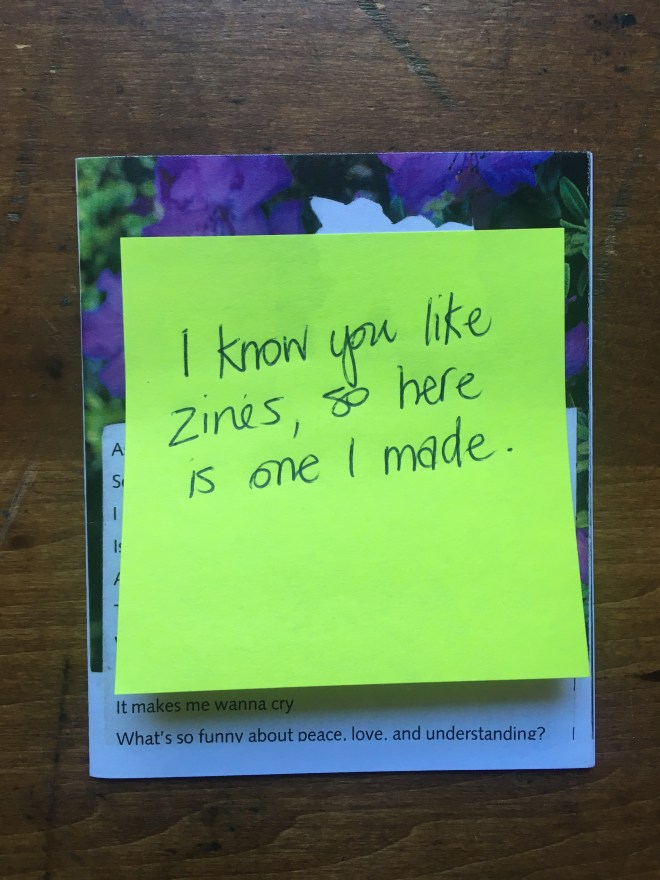 I know you like
zines, so here
is one I made.
I
It makes me wanna cry
What's so funny about peace, love, and understanding?